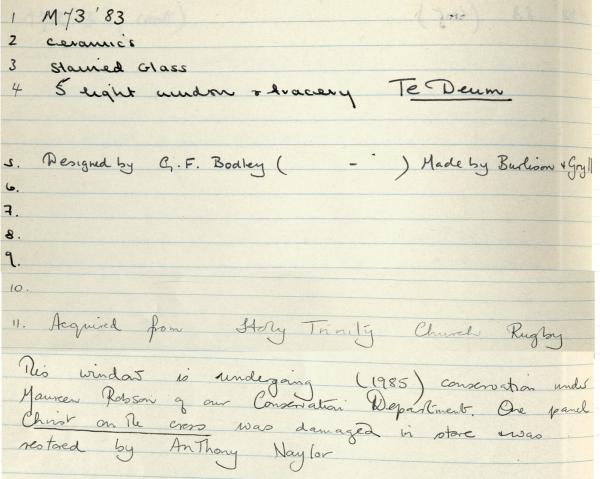 1 M73 '83
2 ceramics
3 Stained Glass
4 5 light window & tracery Te Deum
5. Designed by G. F. Bodley ( - ) Made by Burlison & Gryll
6.
7.
8.
9.
10.
11. Acquired from Holy Trinity Church Rugby
This window is undergoing (1985) conservation under
Maureen Robson of our Conservation Department. One panel
Christ on the cross was damaged in store & was
restored by Anthony Naylor